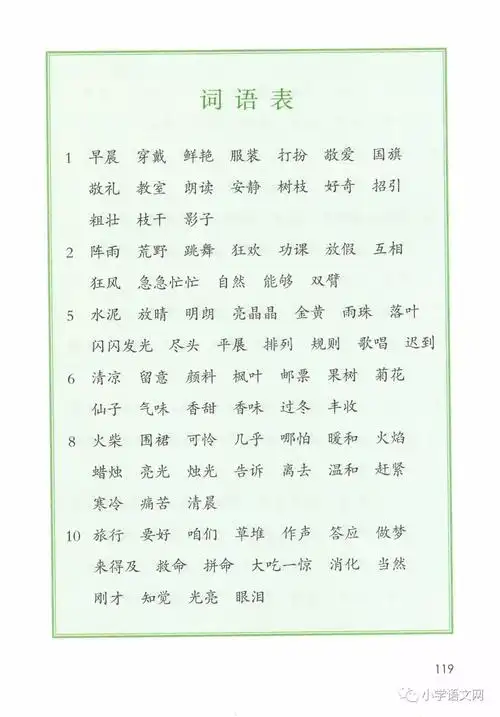 词语表
1 早晨 穿戴 鲜艳 服装 打扮 敬爱 国旗
敬礼 教室 朗读 安静 树枝 好奇 招引
粗壮 枝干 影子
2 阵雨 荒野 跳舞 狂欢 功课 放假 互相
狂风 急急忙忙 自然 能够 双臂
5 水泥 放晴 明朗 亮晶晶 金黄 雨珠 落叶
闪闪发光 尽头 平展 排列 规则 歌唱 迟到
6 清凉 留意 颜料 枫叶 邮票 果树 菊花
仙子 气味 香甜 香味 过冬 丰收
8 火柴 围裙 可怜 几乎 哪怕 暖和 火焰
蜡烛 亮光 烛光 告诉 离去 温和 赶紧
寒冷 痛苦 清晨
10 旅行 要好 咱们 草堆 作声 答应 做梦
来得及 救命 拼命 大吃一惊 消化 当然
刚才 知觉 光亮 眼泪
119
小学语文网